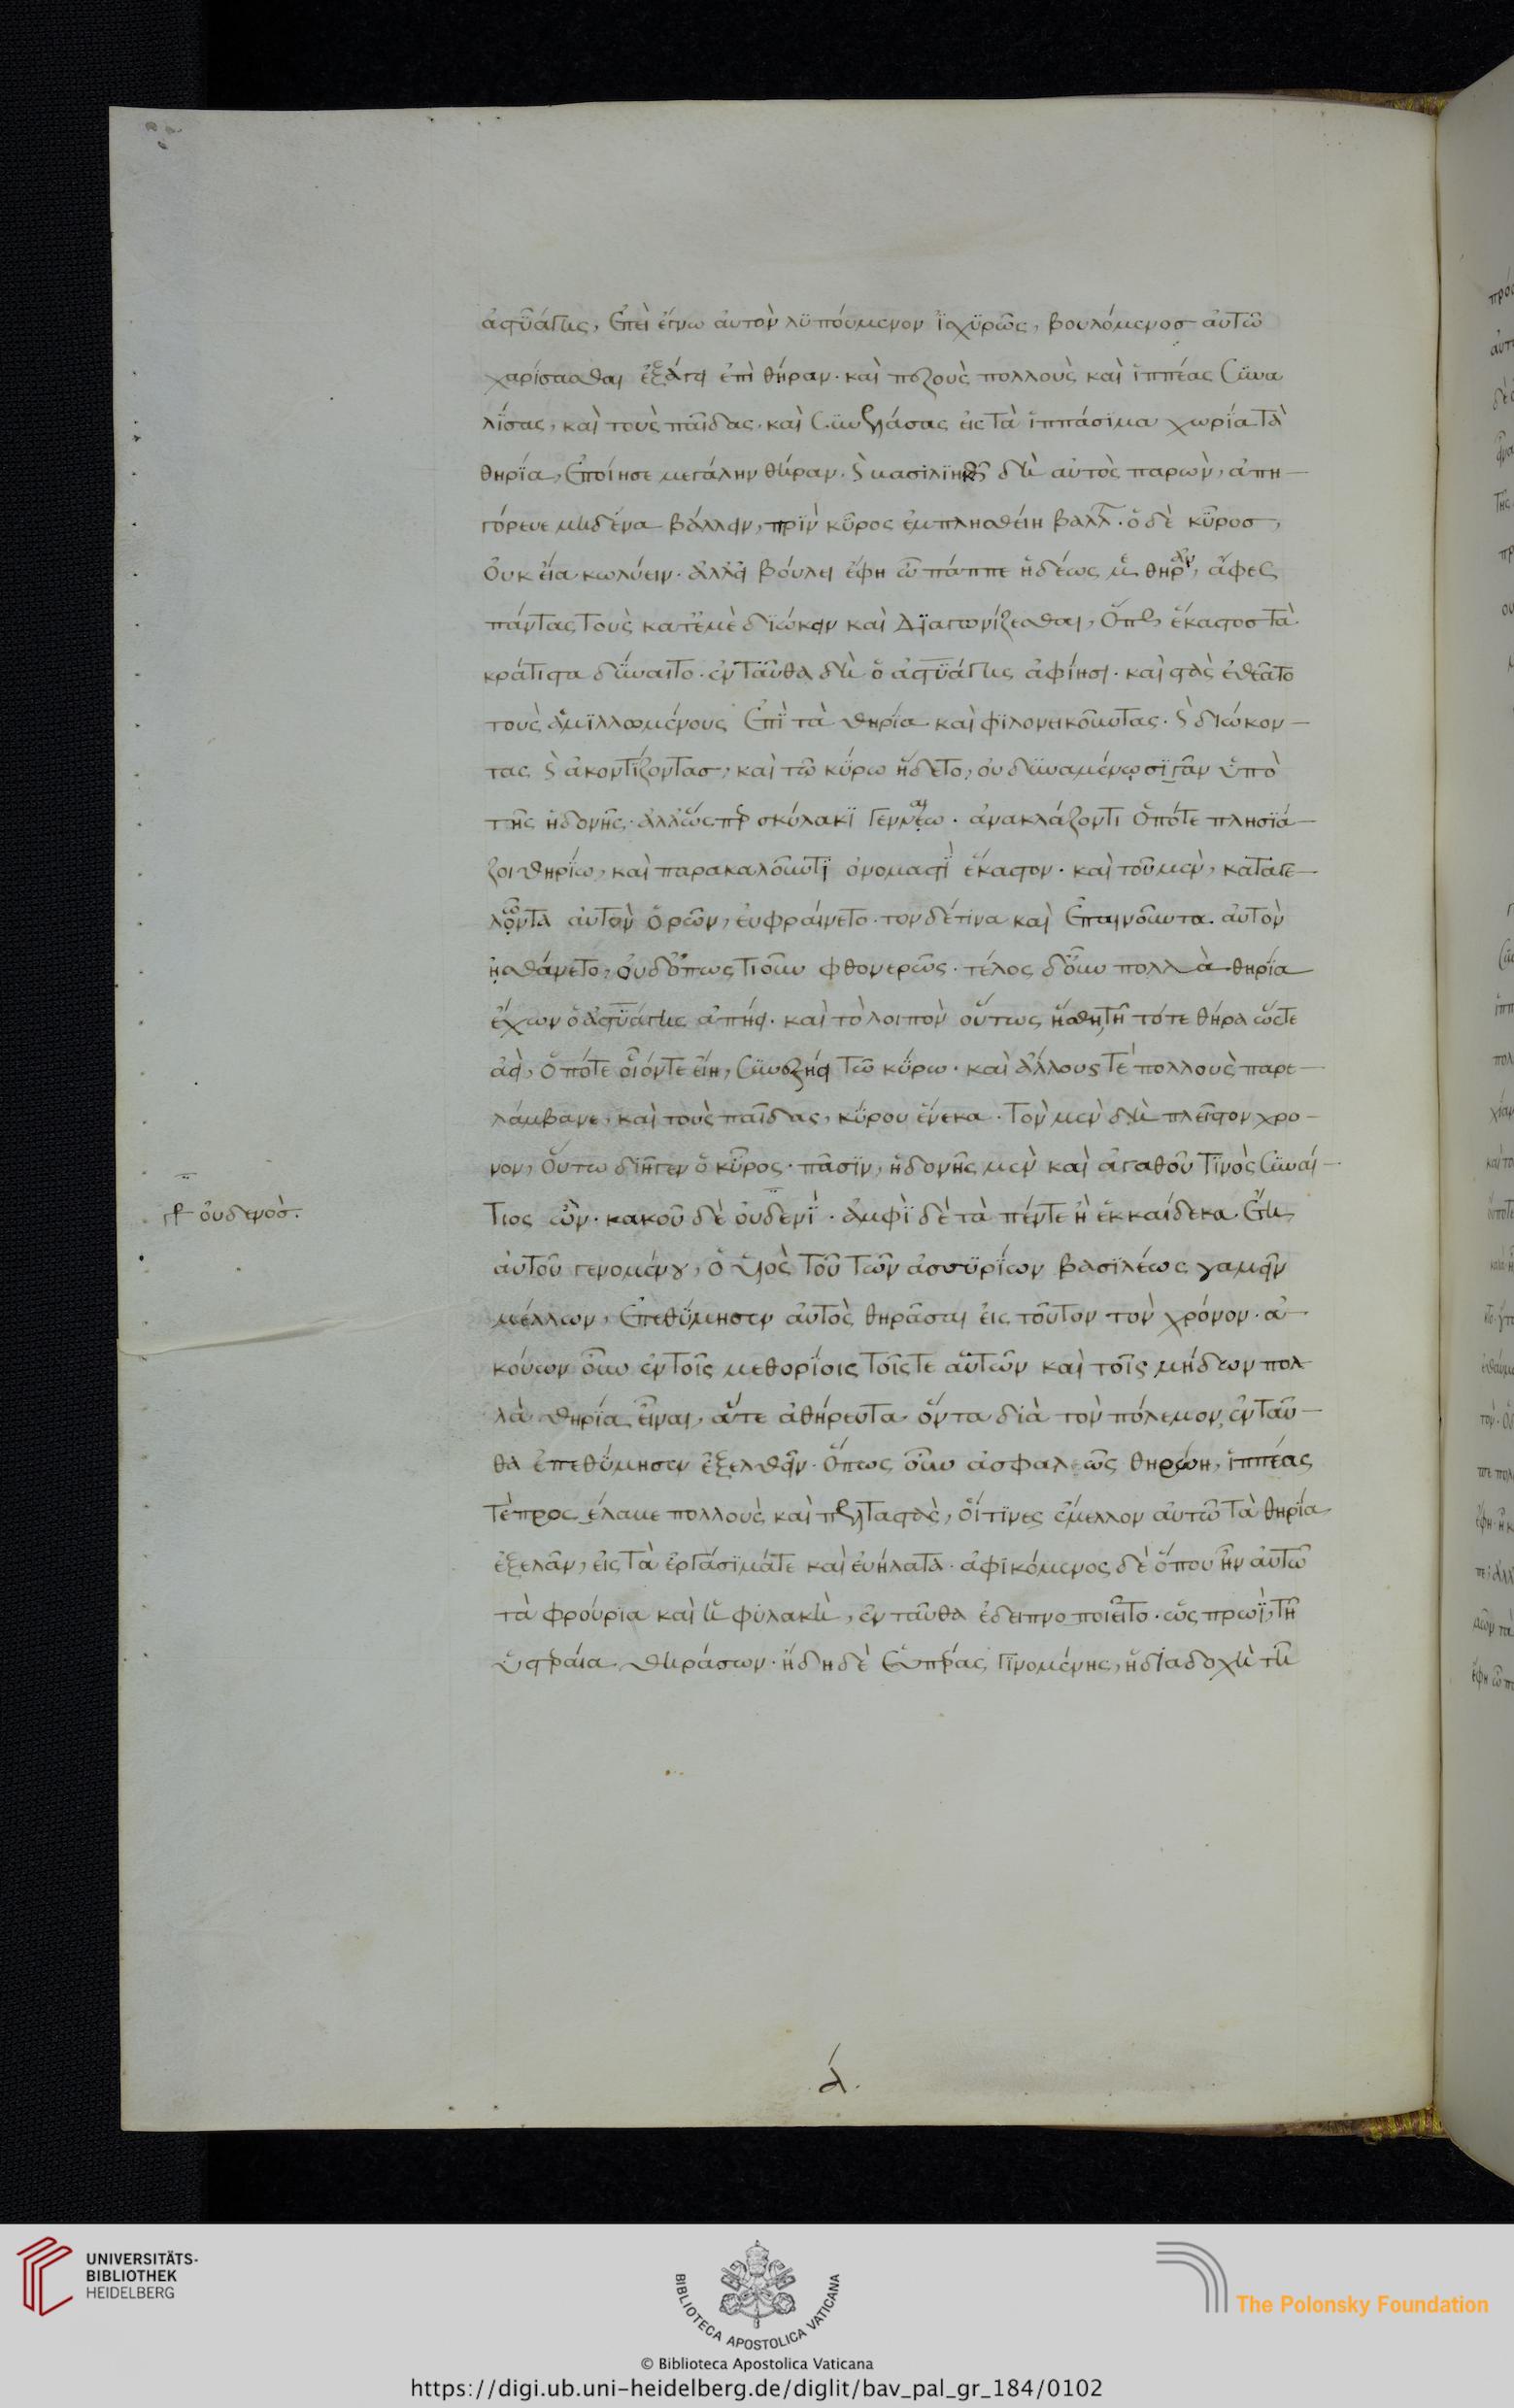 ἀστυάγης, ἐπεὶ ἔγνω αὐτὸν λυπούμενον ἰσχυρῶς, βουλόμενος αὐτῶ
χαρίσασθαι ἐξάγει ἐπὶ θήραν· καὶ πεζοὺς πολλοὺς καὶ ἱππέας συνα
λίσας, καὶ τοὺς παῖδας, καὶ συνελάσας εἰς τὰ ἱππάσιμα χωρία τὰ
θηρία, ἐποίησε μεγάλην θήραν. καὶ βασιλικῶς δὴ αὐτὸς παρὼν, ἀπη–
γόρευε μηδένα βάλλειν, πρὶν κῦρος ἐμπλησθείη βάλλ. ὁ δὲ κῦρος,
οὐκ εἴα κωλύειν. ἀλλ' εἰ βούλει ἔφη ὦ πάππε ἡδέως με θηρᾶν, ἄφες
πάντας τοὺς κατ' ἐμὲ διώκειν καὶ διαγωνίζεσθαι, ὅπως ἕκαστος τὰ
κράτιστα δύναιτο. ἐνταῦθα δὴ ὁ ἀστυάγης ἀφίησι. καὶ στὰς ἐθεᾶτο
τοὺς ἁμιλλωμένους ἐπὶ τὰ θηρία καὶ φιλονεικοῦντας. καὶ διώκον–
τας καὶ ἀκοντίζοντας, καὶ τῶ κύρω ἥδετο, οὐ δυναμένω σιγᾶν ὑπὸ
τῆς ἡδονῆς. ἀλλ' ὥσπερ σκύλακι γενναίω. ἀνακλάζοντι ὁπότε πλησιά–
ζοι θηρίω, καὶ παρακαλοῦντι ὀνομαστὶ ἕκαστον. καὶ τοῦ μὲν, καταγε–
λῶντα αὐτὸν ὁρῶν, εὐφραίνετο. τὸν δέ τινα καὶ ἐπαινοῦντα αὐτὸν
ἠσθάνετο, οὐδ' ὁπωστιοῦν φθονερῶς. τέλος δ' οὖν πολλὰ θηρία
ἔχων ὁ ἀστυάγης ἀπήει. καὶ τὸ λοιπὸν οὕτως ἥσθη τῆ τότε θήρα ὥστε
ἀεὶ, ὁπότε οἷόν τε εἴη, συνεξήει τῶ κύρω. καὶ ἄλλους τὲ πολλοὺς παρε–
λάμβανε, καὶ τοὺς παῖδας, κύρου ἕνεκα. τὸν μὲν δὴ πλεῖστον χρό–
νον, οὕτω διῆγεν ὁ κῦρος. πᾶσιν, ἡδονῆς μὲν καὶ ἀγαθοῦ τινὸς συναί–
γρ οὐδενὸς.
τιος ὢν. κακοῦ δὲ οὐδενὶ. ἀμφὶ δὲ τὰ πέντε ἢ ἑκκαίδεκα ἔτη
αὐτοῦ γενομένου, ὁ υἱὸς τοῦ τῶν ἀσσυρίων βασιλέως γαμεῖν
μέλλων, ἐπεθύμησεν αὐτὸς θηρᾶσαι εἰς τοῦτον τὸν χρόνον. ἀ
κούων οὖν ἐν τοῖς μεθορίοις τοῖς τε αὑτῶν καὶ τοῖς μήδων πολ
λὰ θηρία εἶναι, ἅτε ἀθήρευτα ὄντα διὰ τὸν πόλεμον, ἐνταῦ–
θα ἐπεθύμησεν ἐξελθεῖν. ὅπως οὖν ἀσφαλῶς θηρώη, ἱππέας
τὲ προσέλαβε πολλοὺς καὶ πελταστὰς, οἵτινες ἔμελλον αὐτῶ τὰ θηρία
ἐξελᾶν, εἰς τὰ ἐργάσιμά τε καὶ εὐήλατα. ἀφικόμενος δὲ ὅπου ἦν αὐτῶ
τὰ φρούρια καὶ ἡ φυλακὴ, ἐνταῦθα ἐδειπνοποιεῖτο. ὡς πρωῒ, τῆ
ὑστεραία θηράσων. ἤδη δὲ ἑσπέρας γινομένης, ἡ διαδοχὴ τῆ
ά.
UNIVERSITÄTS-
BIBLIOTHEK
HEIDELBERG
BIBLIOTECA APOSTOLICA VATICANA
The Polonsky Foundation
© Biblioteca Apostolica Vaticana
https://digi.ub.uni-heidelberg.de/diglit/bav_pal_gr_184/0102